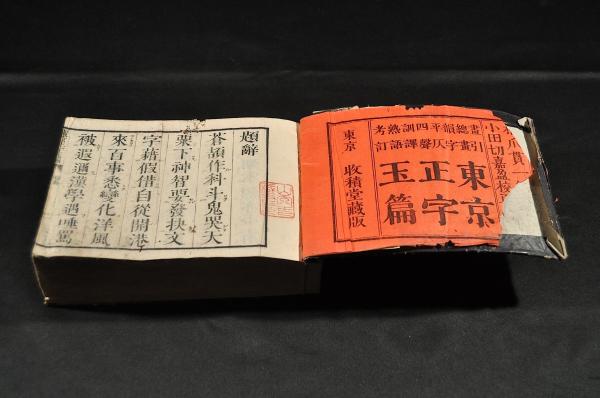 爪貫一
小田切嘉盈校
畫引
總畫
韻字
平仄
四聲
訓譯
熟語
考訂
東京
正字
玉篇
東京 收積堂藏版
題辭
蒼頡作科斗鬼哭天
粟下神智要發抉文
字藉假借自從開港
來百事悉變化洋風
被遐邇漢學遇唾罵